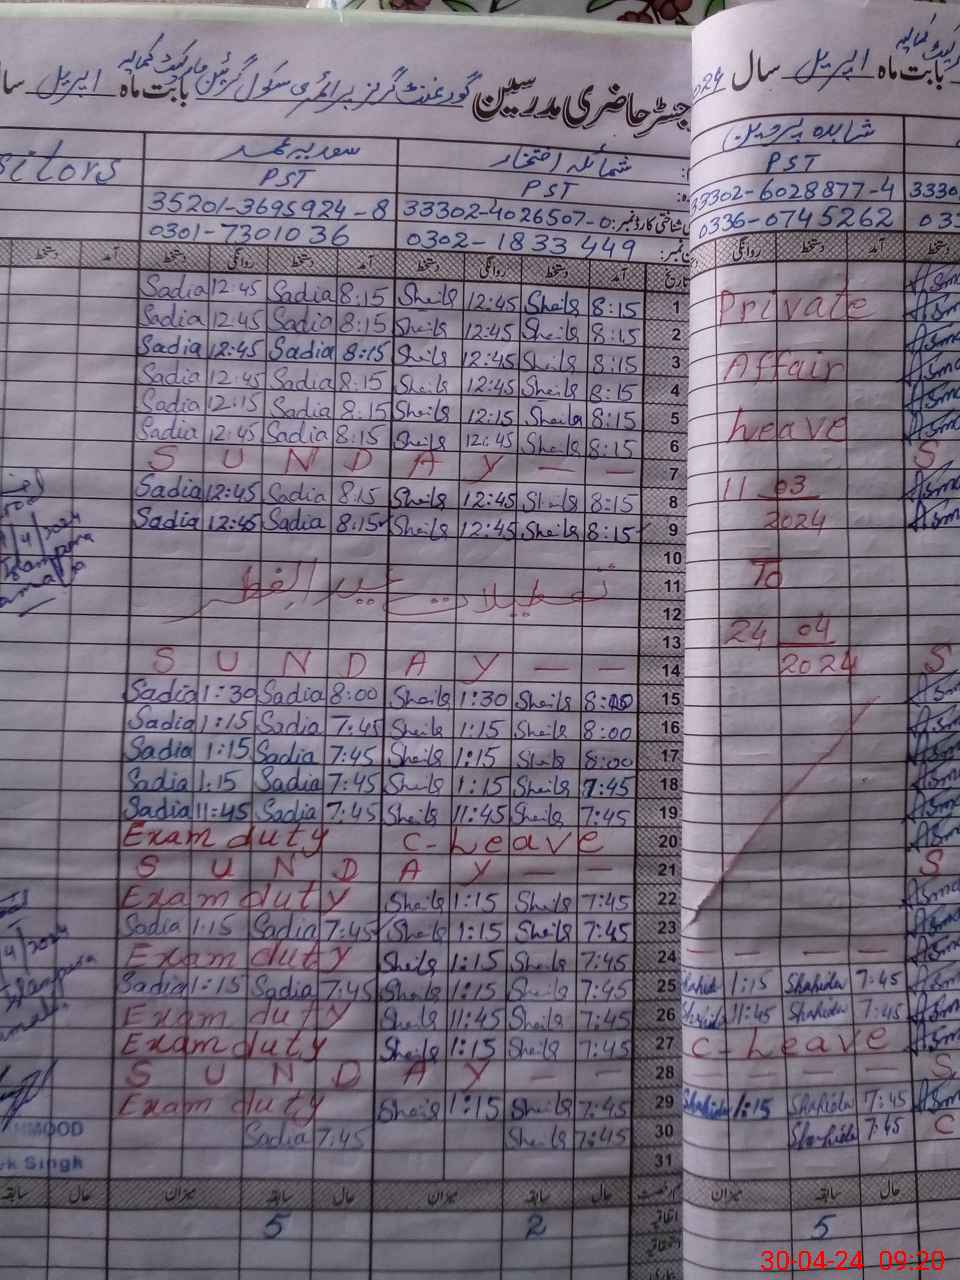 رجسٹر حاضری مدرسین گورنمنٹ گرلز پرائمری سکول بابت ماہ اپریل سا
2024 بابت ماہ اپریل سال
sitors سعدیہ شمائلہ افتخار شاہدہ پروین
PST PST PST
35201-3695924-8 33302-4026507-0 شناختی کارڈ نمبر: 33302-6028877-4 3330
0301-7301036 0302-1833449 0336-0745262 033
دستخط آمد دستخط روانگی دستخط آمد دستخط روانگی دستخط آمد تاریخ روانگی دستخط آمد
Sadia 12:45 Sadia 8:15 Sheila 12:45 Sheila 8:15 1 Private Asma
Sadia 12:45 Sadia 8:15 Sheila 12:45 Sheila 8:15 2 Asma
Sadia 12:45 Sadia 8:15 Sheila 12:45 Sheila 8:15 3 Affair Asma
Sadia 12:45 Sadia 8:15 Sheila 12:45 Sheila 8:15 4 Asma
Sadia 12:15 Sadia 8:15 Sheila 12:15 Sheila 8:15 5 Leave Asma
Sadia 12:45 Sadia 8:15 Sheila 12:45 Sheila 8:15 6
S U N D A Y — — 7 S
Sadia 12:45 Sadia 8:15 Sheila 12:45 Sheila 8:15 8 11 03 Asma
Sadia 12:45 Sadia 8:15 Sheila 12:45 Sheila 8:15 9 2024 Asma
10
تعطیلات عید الفطر 11 To
12
13 24 04
S U N D A Y — — 14 2024 S
Sadia 1:30 Sadia 8:00 Sheila 1:30 Sheila 8:00 15 Asma
Sadia 1:15 Sadia 7:45 Sheila 1:15 Sheila 8:00 16 Asma
Sadia 1:15 Sadia 7:45 Sheila 1:15 Sheila 8:00 17 Asma
Sadia 1:15 Sadia 7:45 Sheila 1:15 Sheila 7:45 18 Asma
Sadia 11:45 Sadia 7:45 Sheila 11:45 Sheila 7:45 19 Asma
Exam duty C-Leave 20 Asma
S U N D A Y — — 21 S
Exam duty Sheila 1:15 Sheila 7:45 22 Asma
Sadia 1:15 Sadia 7:45 Sheila 1:15 Sheila 7:45 23 Asma
Exam duty Sheila 1:15 Sheila 7:45 24 — — — — Asma
Sadia 1:15 Sadia 7:45 Sheila 1:15 Sheila 7:45 25 Shahida 1:15 Shahida 7:45 Asma
Exam duty Sheila 11:45 Sheila 7:45 26 Shahida 11:45 Shahida 7:45 Asma
Exam duty Sheila 1:15 Sheila 7:45 27 C-Leave Asma
S U N D A Y — — 28 — — — — S
Exam duty Sheila 1:15 Sheila 7:45 29 Shahida 1:15 Shahida 7:45 Asma
Sadia 7:45 Sheila 7:45 30 Shahida 7:45 C
Singh 31
سابقہ حال میزان سابقہ حال میزان سابقہ حال میزان سابقہ حال
5 2 اتفاقیہ 5
30-04-24 09:20